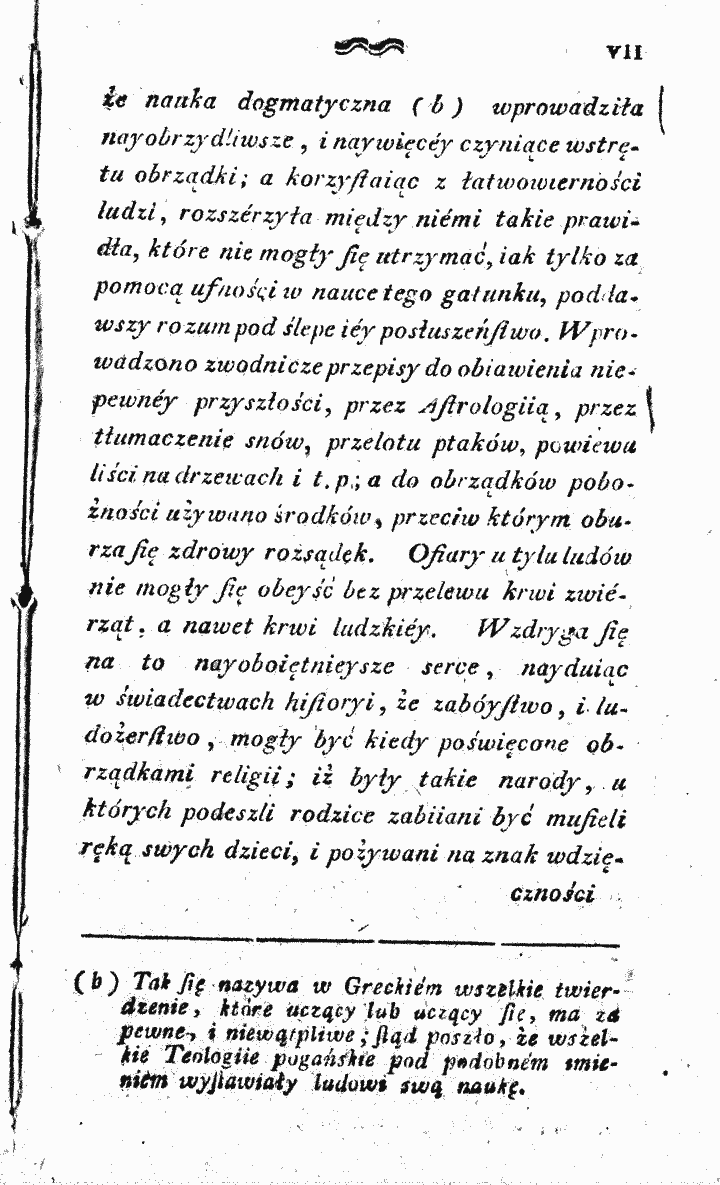 VII
że nauka dogmatyczna ( b ) wprowadziła
nayobrzydliwsze , i naywięcéy czyniące wstrę-
tu obrządki; a korzyſtaiąc z łatwowierności
ludzi, rozszérzyła między niémi takie prawi-
dła, które nie mogły ſię utrzymać, iak tylko za
pomocą ufności w nauce tego gatunku, podda-
wszy rozum pod ślepe iéy posłuszeńſtwo. Wpro-
wadzono zwodnicze przepisy do obiawienia nie-
pewnéy przyszłości, przez Aſtrologiią, przez
tłumaczenie snów, przelotu ptaków, powiewu
liści na drzewach i t. p.; a do obrządków pobo-
żności używano środków, przeciw którym obu-
rza ſię zdrowy rozsądek. Ofiary u tylu ludów
nie mogły ſię obeyść bez przelewu krwi zwié-
rząt, a nawet krwi ludzkiéy. Wzdryga ſię
na to nayoboiętnieysze serce, nayduiąc
w świadectwach hiſtoryi, że zabóyſtwo, i lu-
dożerſtwo, mogły być kiedy poświęcone ob-
rządkami religii; iż były takie narody, u
których podeszli rodzice zabiiani być muſieli
ręką swych dzieci, i pożywani na znak wdzię-
czności
(b) Tak ſię nazywa w Greckiém wszelkie twier-
dzenie, które uczący lub uczący ſię, ma za
pewne, i niewątpliwe; ſtąd poszło, że wszel-
kie Teologiie pogańskie pod podobném imie-
niém wyſtawiały ludowi swą naukę.